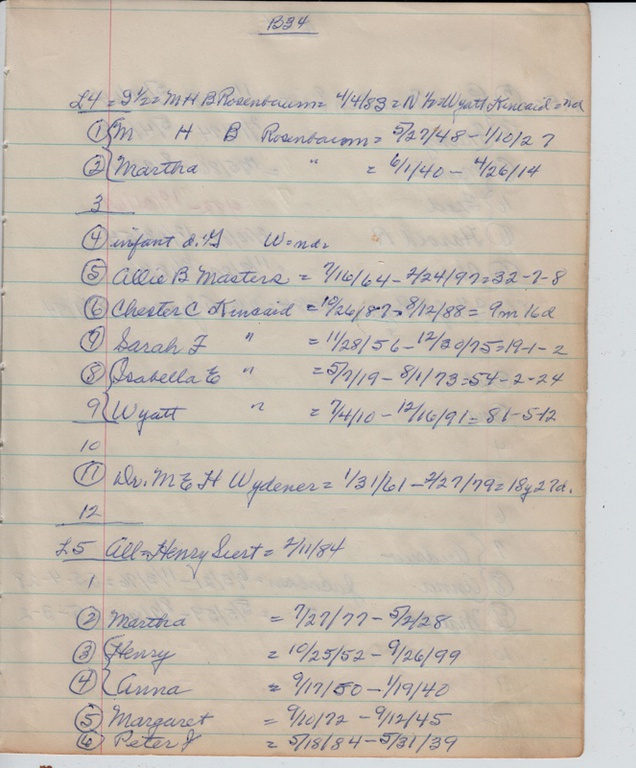 B34
L4 = S½ = M H B Rosenbaum = 4/4/83 = N ½ = Wyatt Kincaid = nd
① M H B Rosenbaum = 5/27/48 - 1/10/27
② Martha " = 6/1/40 - 4/26/14
3
④ infant d. W = nd.
⑤ Allie B Masters = 7/16/64 - 2/24/97 = 32-7-8
⑥ Chester C Kincaid = 10/26/87 - 8/12/88 = 9m 16d
⑦ Sarah F " = 11/28/56 - 12/30/75 = 19-1-2
⑧ Isabella E " = 5/7/19 - 8/1/73 = 54-2-24
9 Wyatt " = 7/4/10 - 12/16/91 = 81-5-12
10
⑪ Dr. M E H Wydener = 1/31/61 - 2/27/79 = 18y 27d.
12
L5 All = Henry = 2/11/84
1
② Martha = 7/27/77 - 5/2/28
③ Henry = 10/25/52 - 9/26/99
④ Anna = 9/17/50 - 1/19/40
⑤ Margaret = 9/10/72 - 9/12/45
⑥ Peter J = 5/18/84 - 5/31/39